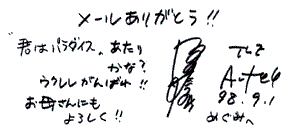 メールありがとう!!
"君はパラダイス"あたり
かな?
ウクレレがんばれ!!
お母さんにも
よろしく!!
98.9.1
めぐみへ